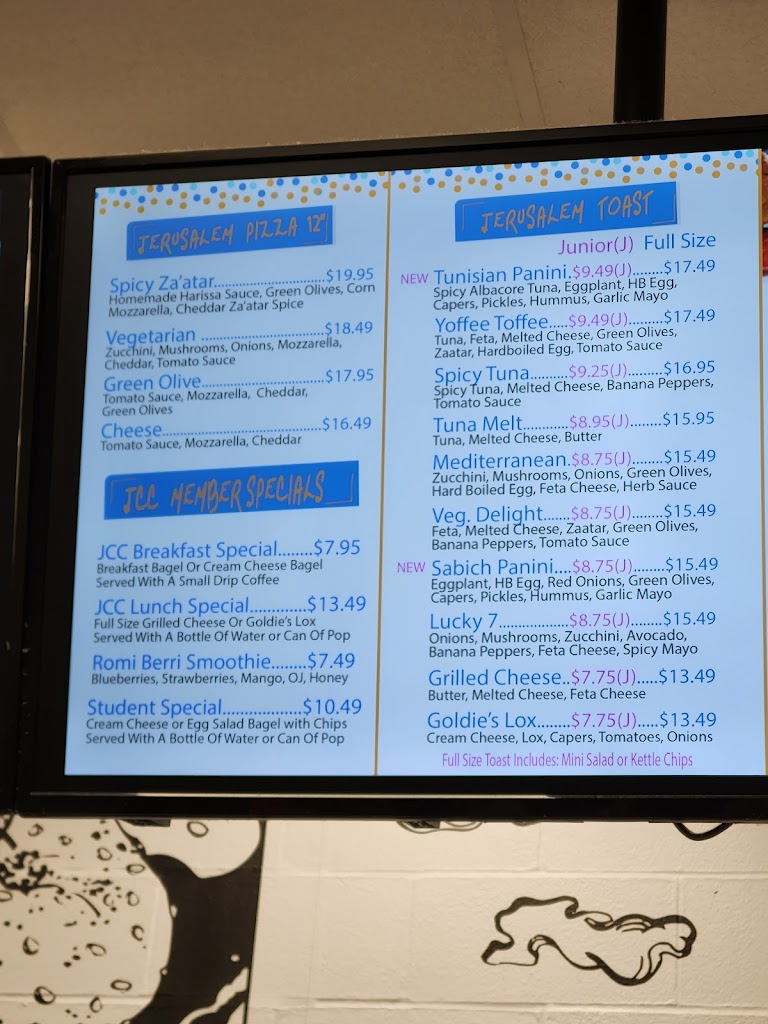 JERUSALEM PIZZA 12"
Spicy Za'atar..............................$19.95
Homemade Harissa Sauce, Green Olives, Corn
Mozzarella, Cheddar Za'atar Spice
Vegetarian ..............................$18.49
Zucchini, Mushrooms, Onions, Mozzarella,
Cheddar, Tomato Sauce
Green Olive..............................$17.95
Tomato Sauce, Mozzarella, Cheddar,
Green Olives
Cheese..............................$16.49
Tomato Sauce, Mozzarella, Cheddar
JCC MEMBER SPECIALS
JCC Breakfast Special........$7.95
Breakfast Bagel Or Cream Cheese Bagel
Served With A Small Drip Coffee
JCC Lunch Special.............$13.49
Full Size Grilled Cheese Or Goldie's Lox
Served With A Bottle Of Water or Can Of Pop
Romi Berri Smoothie........$7.49
Blueberries, Strawberries, Mango, OJ, Honey
Student Special..................$10.49
Cream Cheese or Egg Salad Bagel with Chips
Served With A Bottle Of Water or Can Of Pop
JERUSALEM TOAST
Junior(J) Full Size
NEW Tunisian Panini.$9.49(J)........$17.49
Spicy Albacore Tuna, Eggplant, HB Egg,
Capers, Pickles, Hummus, Garlic Mayo
Yoffee Toffee.....$9.49(J).........$17.49
Tuna, Feta, Melted Cheese, Green Olives,
Zaatar, Hardboiled Egg, Tomato Sauce
Spicy Tuna.........$9.25(J).........$16.95
Spicy Tuna, Melted Cheese, Banana Peppers,
Tomato Sauce
Tuna Melt..........$8.95(J)........$15.95
Tuna, Melted Cheese, Butter
Mediterranean.$8.75(J)........$15.49
Zucchini, Mushrooms, Onions, Green Olives,
Hard Boiled Egg, Feta Cheese, Herb Sauce
Veg. Delight.......$8.75(J)........$15.49
Feta, Melted Cheese, Zaatar, Green Olives,
Banana Peppers, Tomato Sauce
NEW Sabich Panini....$8.75(J)........$15.49
Eggplant, HB Egg, Red Onions, Green Olives,
Capers, Pickles, Hummus, Garlic Mayo
Lucky 7....................$8.75(J)........$15.49
Onions, Mushrooms, Zucchini, Avocado,
Banana Peppers, Feta Cheese, Spicy Mayo
Grilled Cheese..$7.75(J).....$13.49
Butter, Melted Cheese, Feta Cheese
Goldie's Lox........$7.75(J).....$13.49
Cream Cheese, Lox, Capers, Tomatoes, Onions
Full Size Toast Includes: Mini Salad or Kettle Chips